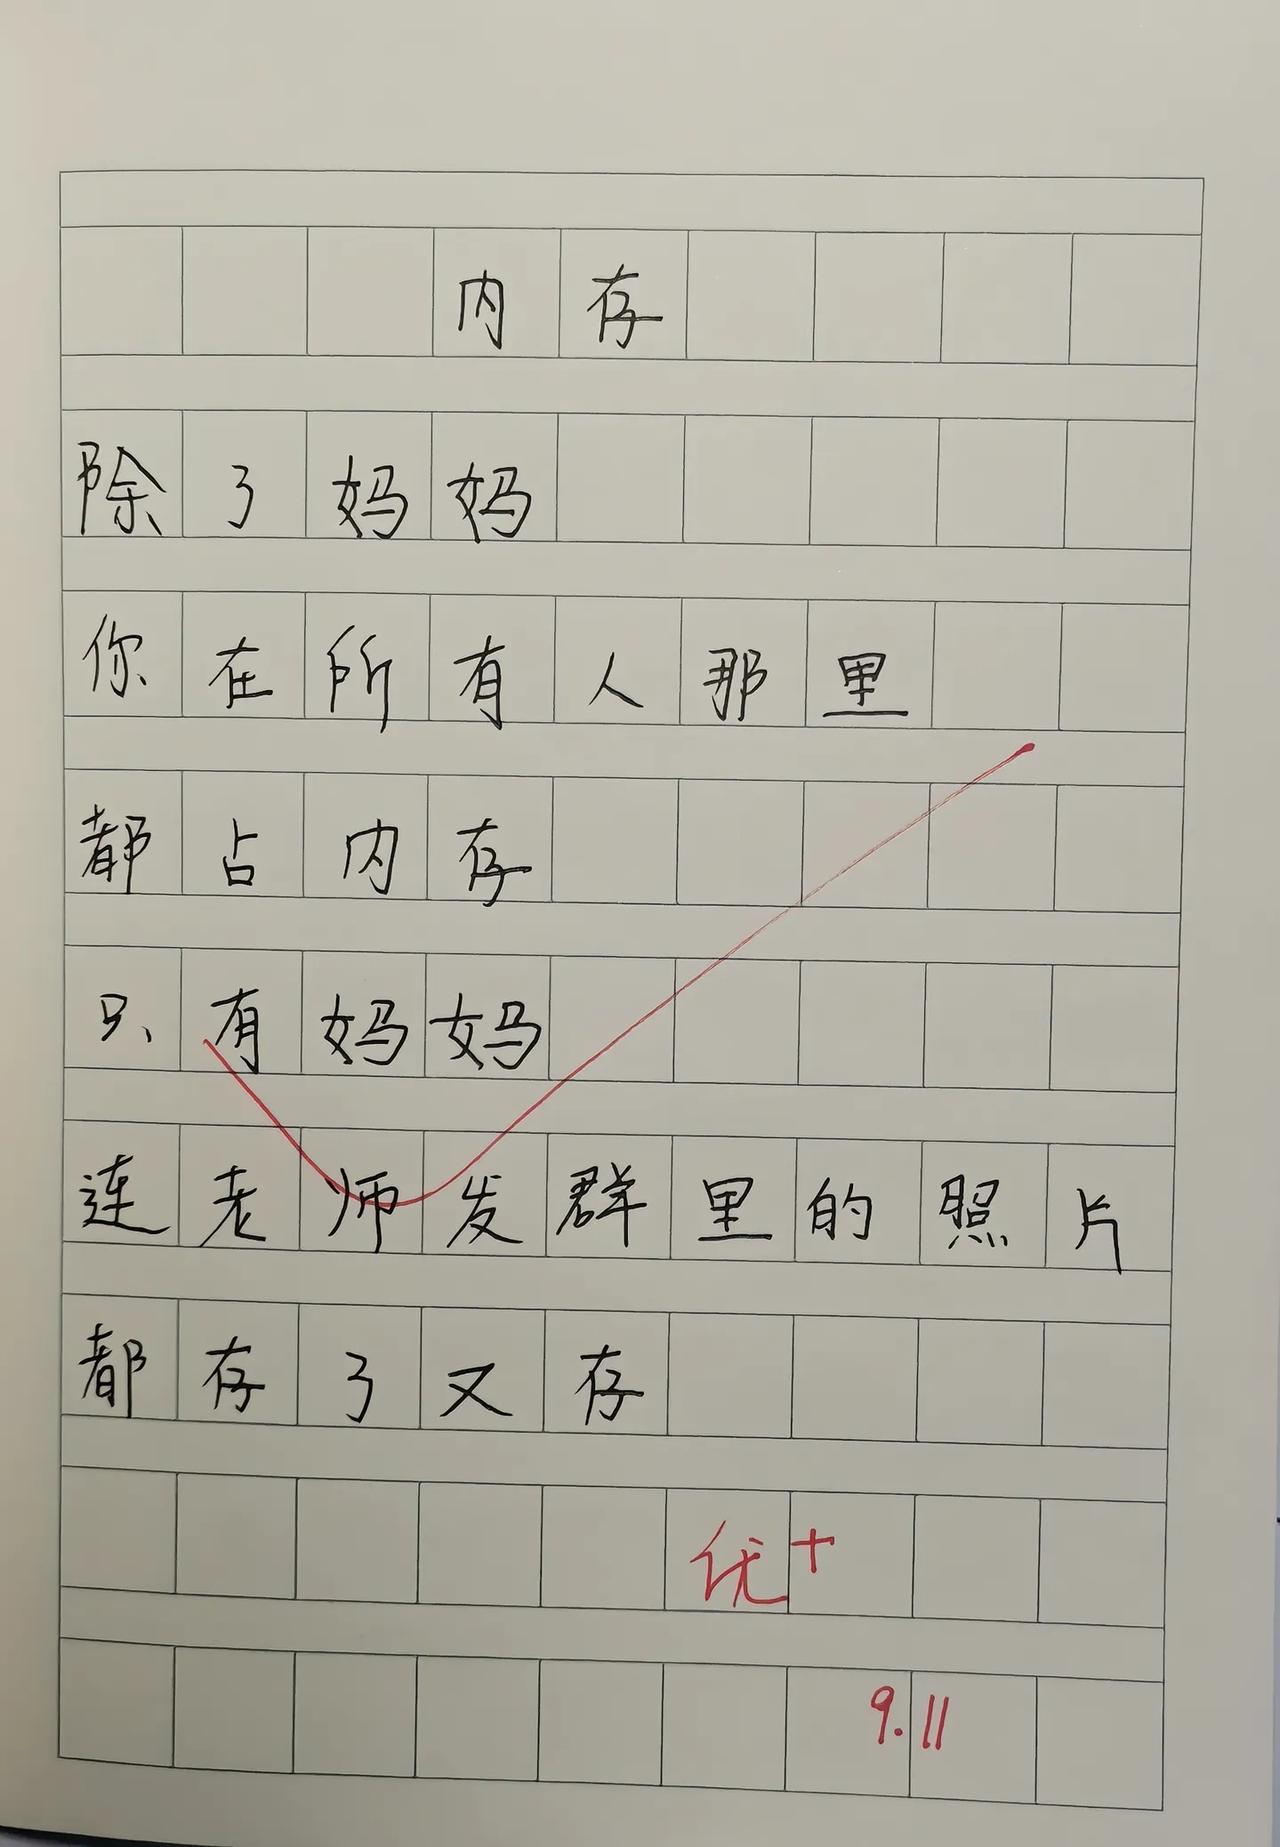 内存
除了妈妈
你在所有人那里
都占内存
只有妈妈
连老师发群里的照片
都存了又存
优+
9.11